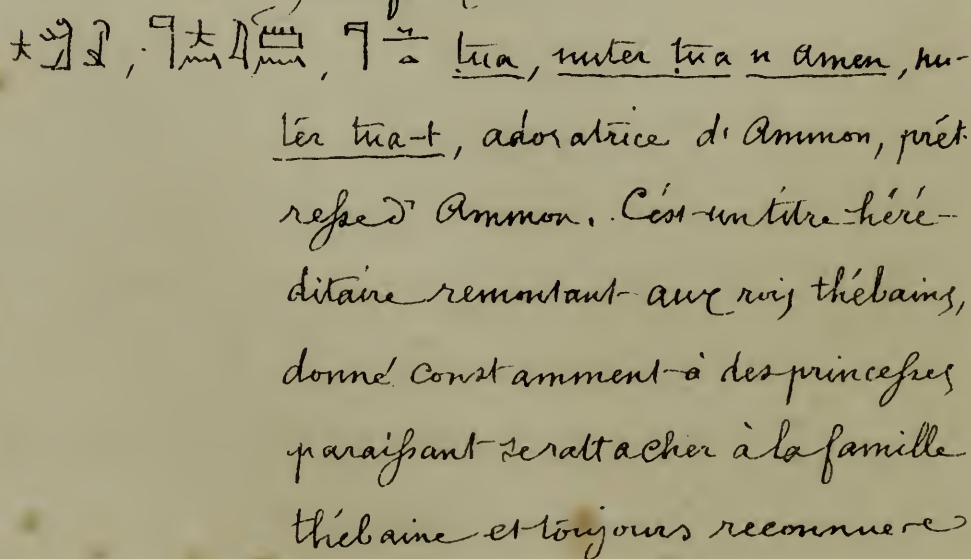 tua, nuter tua n Amen, nu-
ter tua-t, adoratrice d' Ammon, prêt
resse d' Ammon. C'est un titre héré-
ditaire remontant aux rois thébains,
donné constamment à des princesses
paraissant se rattacher à la famille
thébaine et toujours reconnue